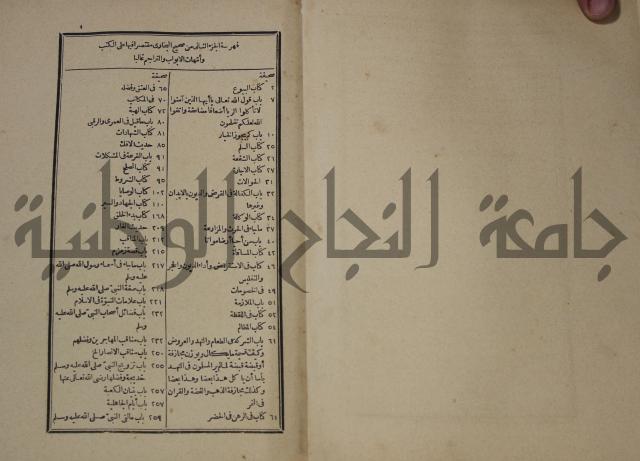 فهرسة الجزء الثانى من صحيح البخارى مقتصرا فيها على الكتب
وأمهات الابواب والتراجم غالبا
صحيفة
٢ كتاب البيوع
٧ باب قول الله تعالى يا أيها الذين آمنوا
لا تأكلوا الربا أضعافا مضاعفة واتقوا
الله لعلكم تفلحون
١٠ باب كم يجوز الخيار
٢٥ كتاب السلم
٢٦ كتاب الشفعة
٢٧ كتاب الاجارة
٣١ الحوالات
٣٢ باب الكفالة فى القرض والديون بالابدان
وغيرها
٣٤ كتاب الوكالة
٣٧ ماجاء فى الحرث والمزارعة
٤٠ باب من أحيا أرضا مواتا
٤٢ كتاب المساقاة
٤٦ كتاب فى الاستقراض وأداء الديون والحجر
والتفليس
٤٩ فى الخصومات
٥١ باب الملازمة
٥٢ كتاب فى اللقطة
٥٤ كتاب المظالم
٦١ باب الشركة فى الطعام والنهد والعروض
وكيف قسمة ما يكال ويوزن مجازفة
أو قبضة قبضة لما لم ير المسلمون فى النهد
بأسا أن يأكل هذا بعضا وهذا بعضا
وكذلك مجازفة الذهب والفضة والقران
فى التمر
٦٤ كتاب فى الرهن فى الحضر
صحيفة
٦٥ فى العتق وفضله
٧٠ فى المكاتب
٧٢ كتاب الهبة
٨٠ باب ماقيل فى العمرى والرقبى
٨١ كتاب الشهادات
٨٥ حديث الافك
٩١ باب القرعة فى المشكلات
٩١ كتاب الصلح
٩٥ كتاب الشروط
١٠٢ كتاب الوصايا
١١٠ كتاب الجهاد والسير
١٦٨ كتاب بدء الخلق
٢٠٩ حديث الغار
٢١٢ باب المناقب
٢١٥ باب قصة زمزم
٢١٧ باب ماجاء فى أسماء رسول الله صلى الله
عليه وسلم
٢١٨ باب صفة النبى صلى الله عليه وسلم
٢٢١ باب علامات النبوة فى الاسلام
٢٣٢ باب فضائل أصحاب النبى صلى الله عليه
وسلم
٢٣٢ باب مناقب المهاجرين وفضلهم
٢٥٠ باب مناقب الانصار الخ
٢٥٥ باب تزويج النبى صلى الله عليه وسلم
خديجة وفضلها رضى الله تعالى عنها
٢٥٧ باب بنيان الكعبة
٢٥٧ باب أيام الجاهلية
٢٥٩ باب مالقى النبى صلى الله عليه وسلم
جامعة النجاح الوطنية